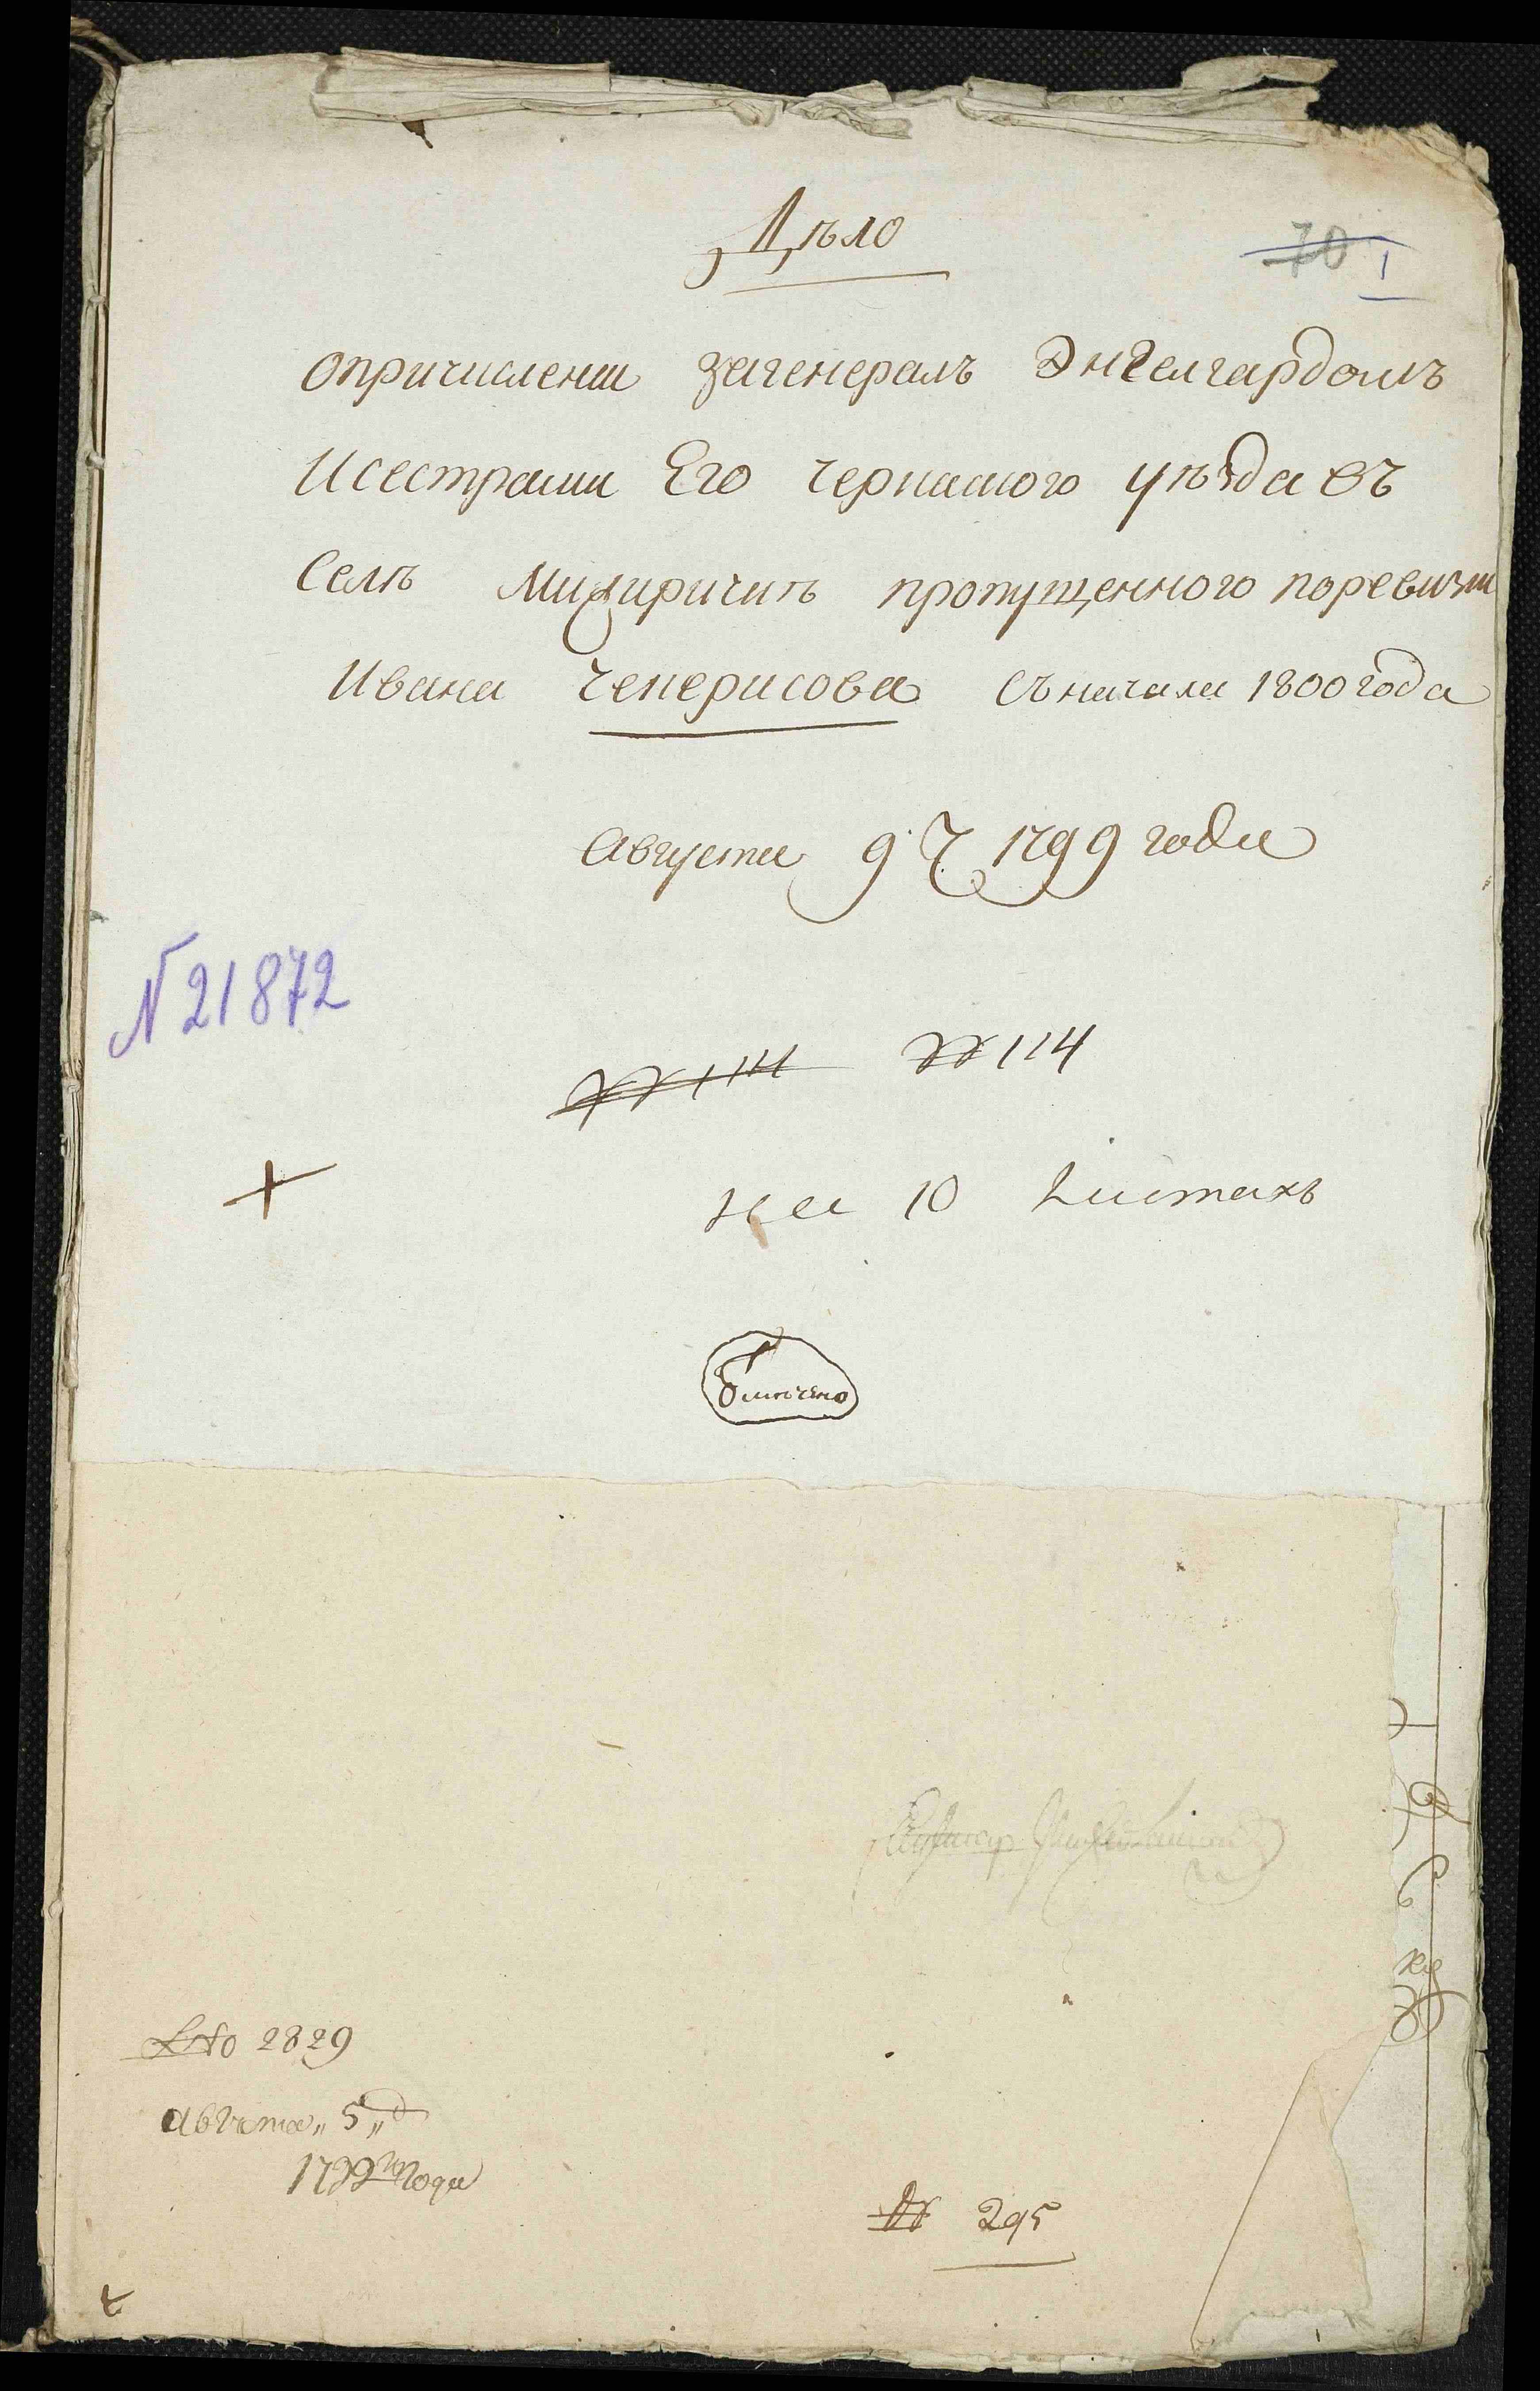 Дѣло
70 1
опричислении загенералъ Энгелгардомъ
Исестрами Его черкаского уѣзда въ
Селѣ пропущенного поревизии
Ивана Чеперисова съначала 1800 года
Августа 9 ч 1799 года
N 21872
№ 114 № 114
на 10 листахъ
№ 2829
августа „5„
1799 года
№ 295